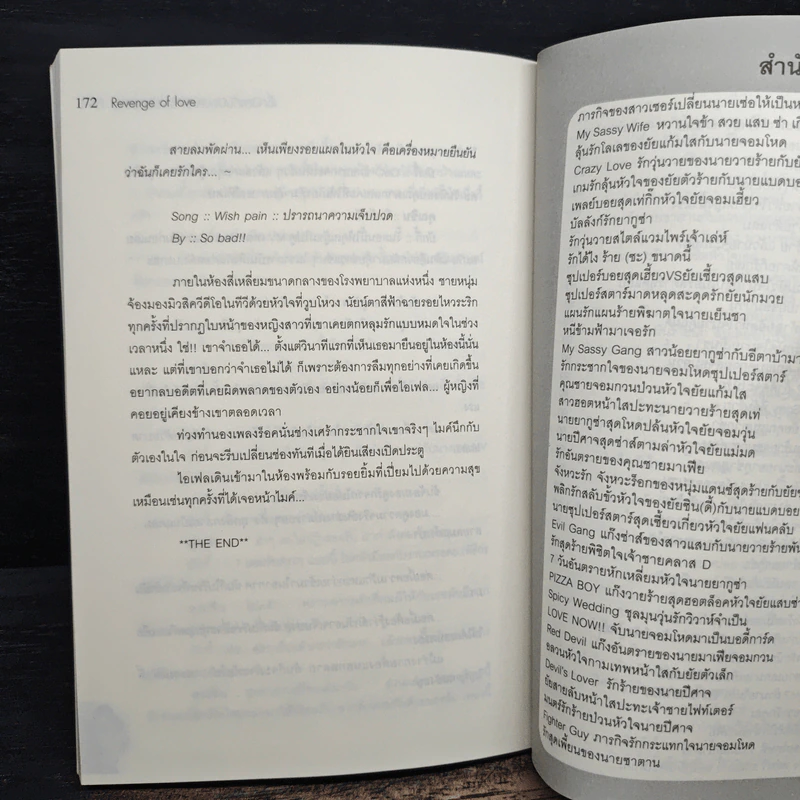 172 Revenge of love
สายลมพัดผ่าน... เห็นเพียงรอยแผลในหัวใจ คือเครื่องหมายยืนยัน
ว่าฉันก็เคยรักใคร... ~
Song :: Wish pain :: ปรารถนาความเจ็บปวด
By :: So bad!!
ภายในห้องสี่เหลี่ยมขนาดกลางของโรงพยาบาลแห่งหนึ่ง ชายหนุ่ม
จ้องมองมิวสิควีดีโอในทีวีด้วยหัวใจที่วูบโหวง นัยน์ตาสีฟ้าฉายรอยไหวระริก
ทุกครั้งที่ปรากฏใบหน้าของหญิงสาวที่เขาเคยตกหลุมรักแบบหมดใจในช่วง
เวลาหนึ่ง ใช่!! เขาจำเธอได้... ตั้งแต่วินาทีแรกที่เห็นเธอมายืนอยู่ในห้องนี้นั่น
แหละ แต่ที่เขาบอกว่าจำเธอไม่ได้ ก็เพราะต้องการลืมทุกอย่างที่เคยเกิดขึ้น
อยากลบอดีตที่เคยผิดพลาดของตัวเอง อย่างน้อยก็เพื่อไอเฟล... ผู้หญิงที่
คอยอยู่เคียงข้างเขาตลอดเวลา
ท่วงทำนองเพลงร็อคนั่นช่างเศร้ากระชากใจเขาจริงๆ ไมค์นึกกับ
ตัวเองในใจ ก่อนจะรีบเปลี่ยนช่องทันทีเมื่อได้ยินเสียงเปิดประตู
ไอเฟลเดินเข้ามาในห้องพร้อมกับรอยยิ้มที่เปี่ยมไปด้วยความสุข
เหมือนเช่นทุกครั้งที่ได้เจอหน้าไมค์...
**THE END**
สำนั
ภารกิจของสาวเซอร์เปลี่ยนนายเซ่อให้เป็นห
My Sassy Wife หวานใจข้า สวย แสบ ซ่า เกิ
ลุ้นรักโลเลของยัยแก้มใสกับนายจอมโหด
Crazy Love รักวุ่นวายของนายวายร้ายกับยั
เกมรักลุ้นหัวใจของยัยตัวร้ายกับนายแบดบอ
เพลย์บอยสุดเท่กิ๊กหัวใจยัยจอมเฮี้ยว
บัลลังก์รักยากูซ่า
รักวุ่นวายสไตล์แวมไพร์เจ้าเล่ห์
รักได้ไง ร้าย (ซะ) ขนาดนี้
ซุปเปอร์บอยสุดเฮี้ยวVSยัยเซี้ยวสุดแสบ
ซุปเปอร์สตาร์มาดหลุดสะดุดรักยัยนักมวย
แผนรักแผนร้ายพิฆาตใจนายเย็นชา
หนีข้ามฟ้ามาเจอรัก
My Sassy Gang สาวน้อยยากูซ่ากับอีตาบ้ามา
รักกระชากใจของนายจอมโหดซุปเปอร์สตาร์
คุณชายจอมกวนป่วนหัวใจยัยแก้มใส
สาวฮอตหน้าใสปะทะนายวายร้ายสุดเท่
นายยากูซ่าสุดโหดปล้นหัวใจจอมวุ่น
นายปีศาจสุดซ่าส์ตามล่าหัวใจยัยแม่มด
รักอันตรายของคุณชายมาเฟีย
จังหวะรัก จังหวะร็อกของหนุ่มแดนซ์สุดร้ายกับยัย
พลิกรักสลับขั้วหัวใจของยัยซึน(ดี้)กับนายแบดบอย
นายซุปเปอร์สตาร์สุดเซี้ยวเกี่ยวหัวใจยัยแฟนคลับ
Evil Gang แก๊งซ่าส์ของสาวแสบกับนายวายร้ายพัน
รักสุดร้ายพิชิตใจเจ้าชายคลาส D
7 วันอันตรายหักเหลี่ยมหัวใจนายยากูซ่า
PIZZA BOY แก๊งวายร้ายสุดฮอตล็อคหัวใจยัยแสบซ่า
Spicy Wedding ชุลมุนวุ่นรักวิวาห์จำเป็น
LOVE NOW!! จับนายจอมโหดมาเป็นบอดี้การ์ด
Red Devil แก๊งอันตรายของนายมาเฟียจอมกวน
อลวนหัวใจกามเทพหน้าใสกับยัยตัวเล็ก
Devil's Lover รักร้ายของนายปีศาจ
ยัยสายลับหน้าใสปะทะเจ้าชายไฟท์เตอร์
มนตร์รักร้ายป่วนหัวใจนายปีศาจ
Fighter Guy ภารกิจรักกระแทกใจนายจอมโหด
รักสุดเพี้ยนของนายซาตาน